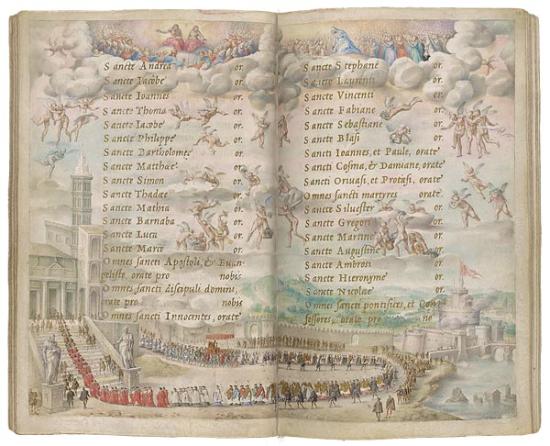 Sancte Andrea or.
Sancte Iacobe or.
Sancte Ioannes or.
Sancte Thoma or.
Sancte Iacobe or.
Sancte Philippe or.
Sancte Bartholomee or.
Sancte Matthæe or.
Sancte Simon or.
Sancte Thadæe or.
Sancte Mathia or.
Sancte Barnaba or.
Sancte Luca or.
Sancte Marce or.
Omnes sancti Apostoli, & Euan
gelistæ orate pro nobis
Omnes sancti discipuli domini,
orate pro nobis
Omnes sancti Innocentes, orate
Sancte Stephane or.
Sancte Laurenti or.
Sancte Vincenti or.
Sancte Fabiane or.
Sancte Sebastiane or.
Sancte Blasi or.
Sancti Ioannes, et Paule, orate
Sancti Cosma, & Damiane, orate
Sancti Geruasi, et Protasi, orate
Omnes sancti martyres orate
Sancte Siluester or.
Sancte Gregori or.
Sancte Martine or.
Sancte Augustine or.
Sancte Ambrosi or.
Sancte Hieronyme or.
Sancte Nicolae or.
Omnes sancti pontifices, et Con
fessores, orate pro no